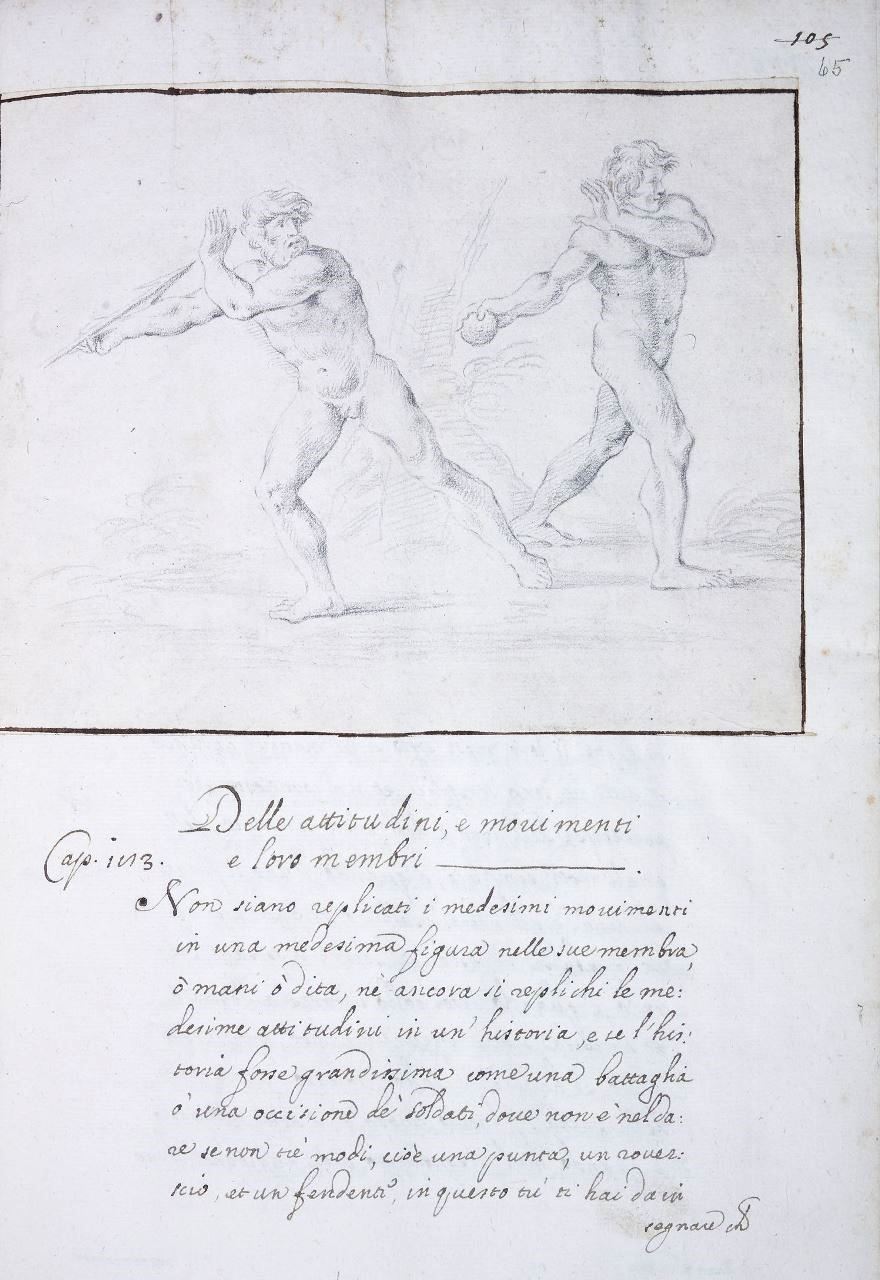 105
65
Delle attitudini, e mouimenti
Cap. 1113. e loro membri
Non siano replicati i medesimi mouimenti
in una medesima figura nelle sue membra,
ò mani ò dita, nè ancora si replichi le me:
desime attitudini in un' historia, e se l'his:
toria fosse grandissima come una battaglia
ò una occisione de' soldati, dove non è nel da:
re se non tre modi, cioè una punta, un rouer:
scio, et un fendente, in questo tu ti hai da in
segnare ch